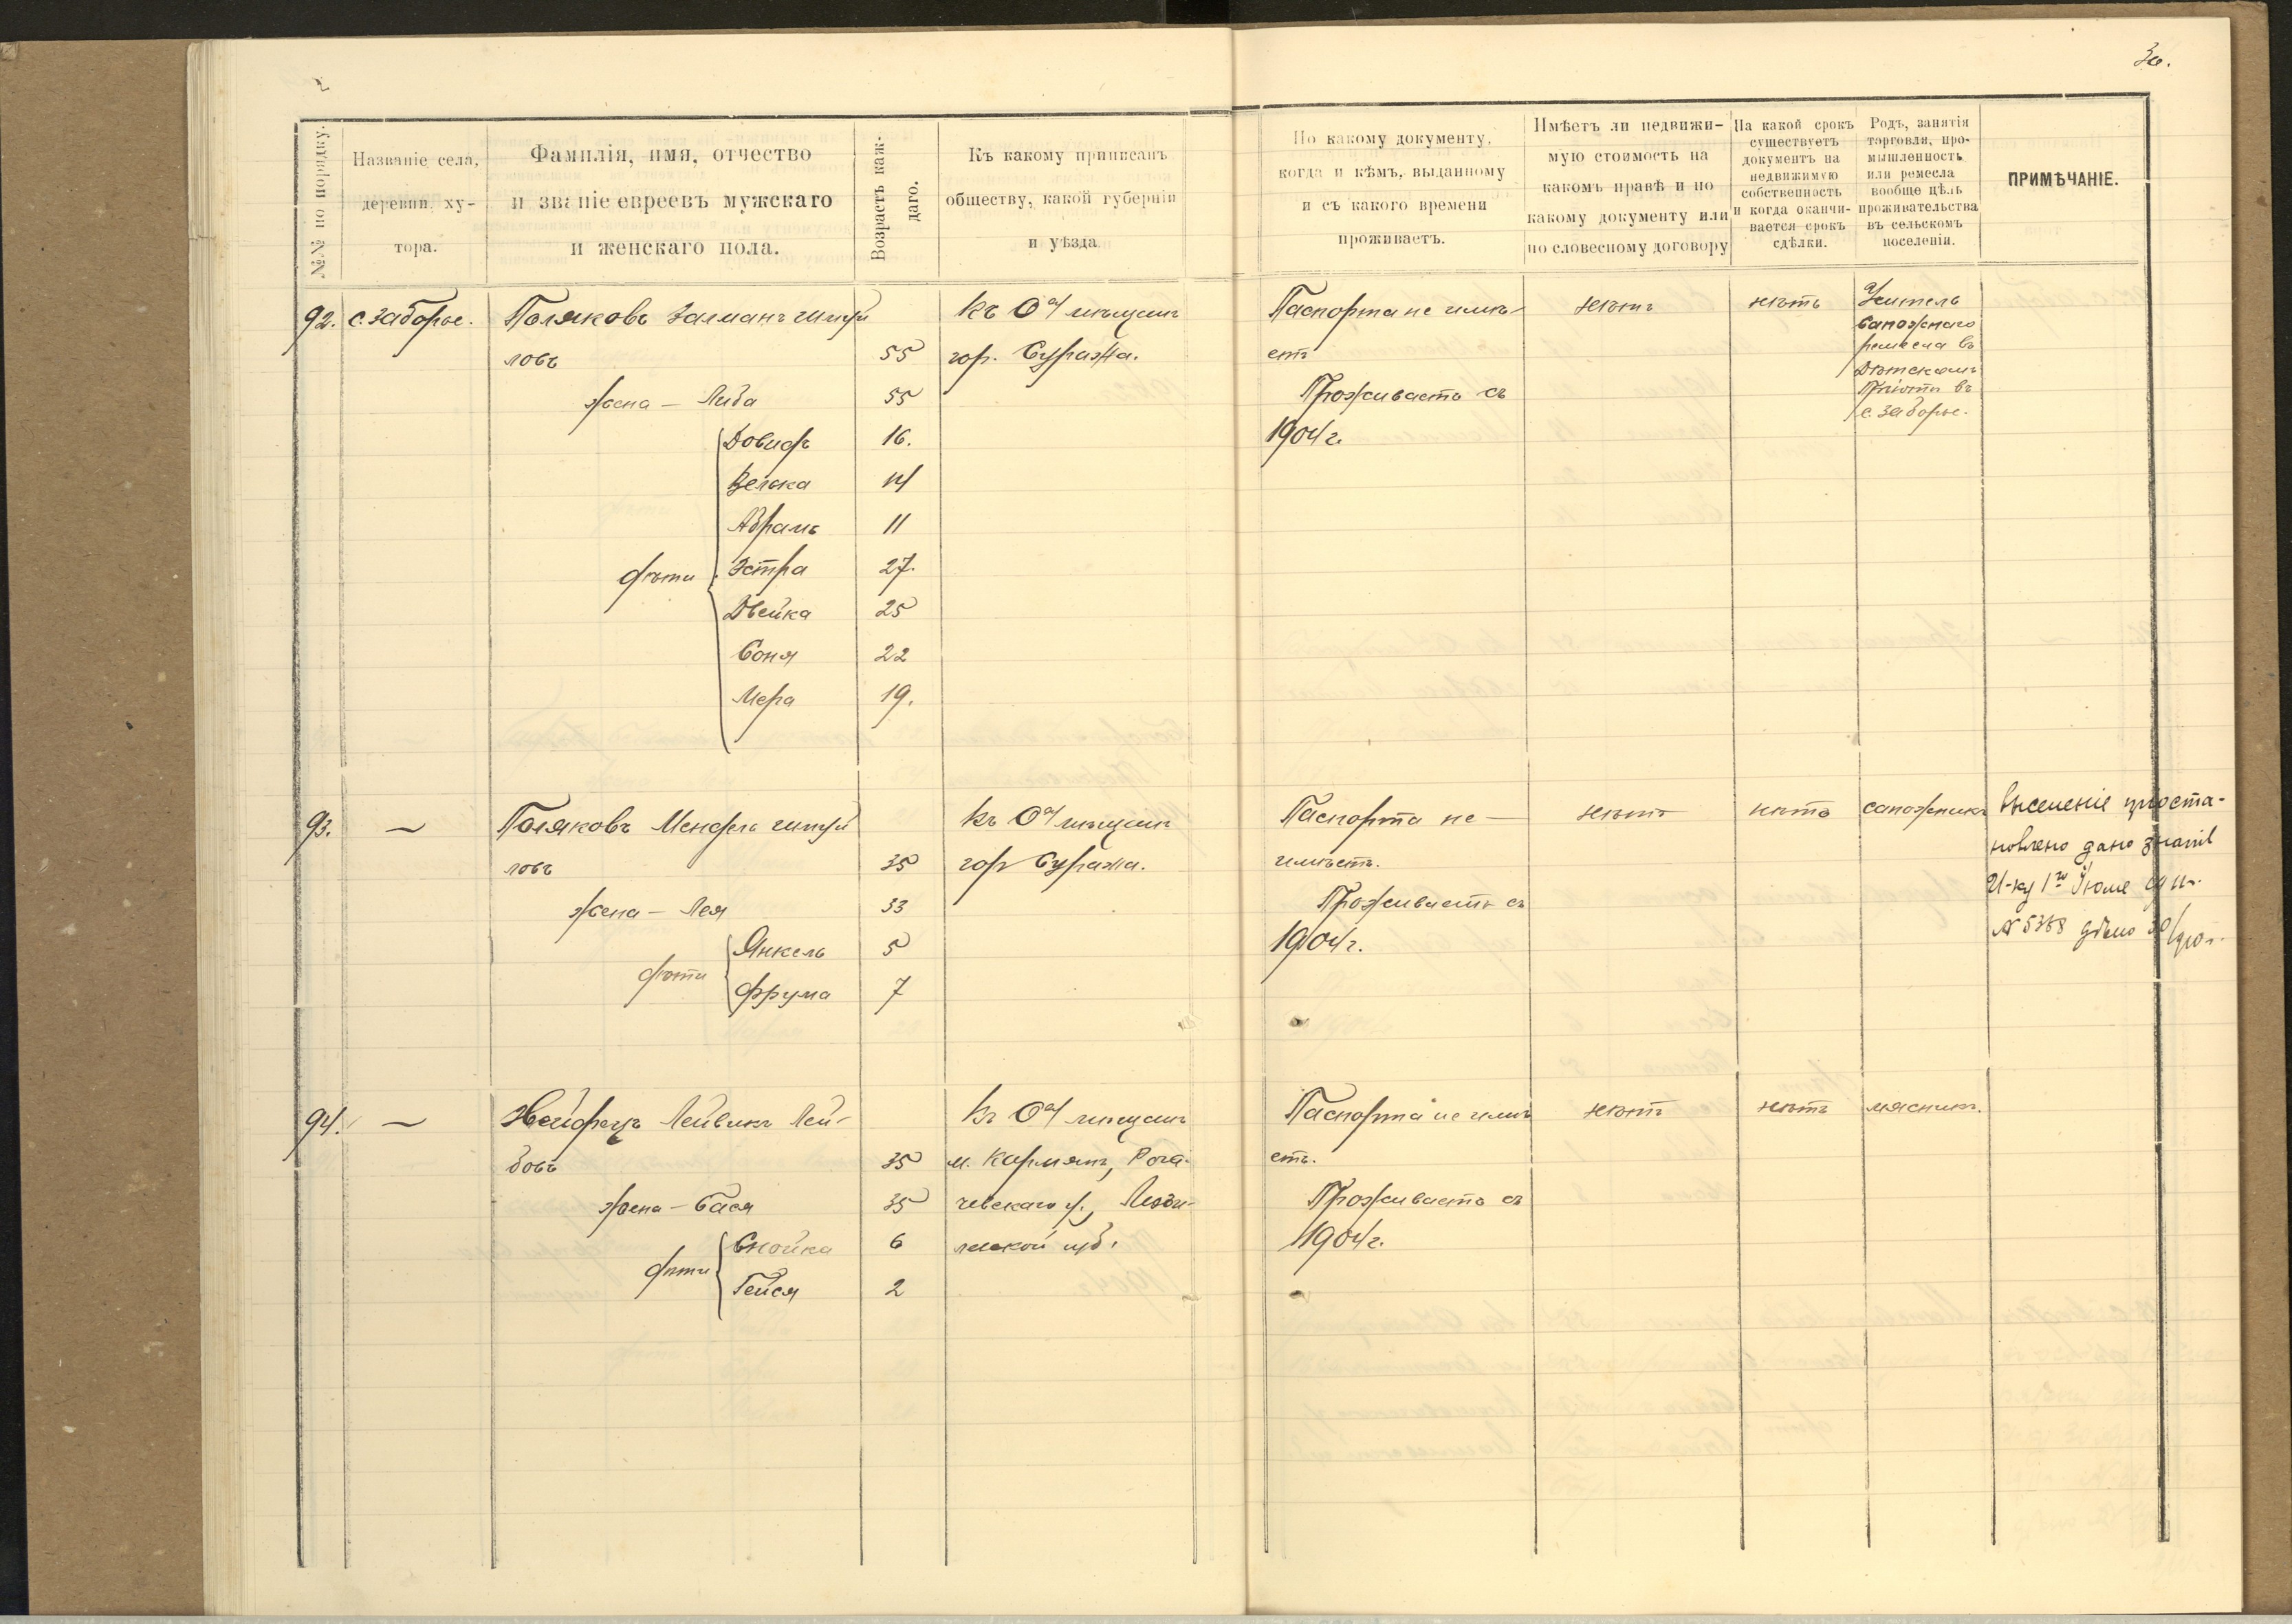 36.
№№ по порядку.
Названіе села, деревни, ху-тора.
Фамилія, имя, отчество
и званіе евреевъ мужскаго
и женскаго пола.
Возрастъ каж-даго.
Къ какому приписанъ
обществу, какой губерніи
и уѣзда
По какому документу,
когда и кѣмъ, выданному
и съ какого времени
проживаетъ.
Имѣетъ ли недвижи-
мую стоимость на
какомъ правѣ и по
какому документу или
по словесному договору
На какой срокъ
существуетъ
документъ на
недвижимую
собственность
и когда оканчи-
вается срокъ
сдѣлки.
Родъ, занятія
торговли, про-
мышленность
или ремесла
вообще цѣль
проживательства
въ сельскомъ
поселеніи.
ПРИМѢЧАНІЕ.
92. с. Заборье. Поляковъ Залманъ Шмуй
ловъ 55
жена — Либа 55
Довидъ 16.
Велька 14
Абрамъ 11
дѣти Эстра 27.
Двейка 25
Соня 22
Мера 19.
Къ Оѵ мѣщанъ
гор. Суража.
Паспорта не имѣ-
етъ
Проживаетъ съ
1904 г.
нѣтъ
нѣтъ
Учитель
сапожнаго
ремесла въ
Дѣтскомъ
Пріютѣ въ
с. Заборье.
93. — Поляковъ Мендель Шмуй
ловъ 35
жена — Лея 33
дѣти Янкель 5
Фрума 7
Къ Оѵ мѣщанъ
гор Суража.
Паспорта не —
имѣетъ.
Проживаетъ съ
1904 г.
нѣтъ
нѣтъ
сапожникъ
Выселеніе пріоста-
новлено дано знать
1го Іюля
№ 5368 дѣло
94. — Лейвикъ Лей-
бовъ 35
жена — Бася 35
дѣти
Гейся 2
6
Къ Оѵ мѣщанъ
м. Кормянъ, Рога-
чевскаго у., Моги-
левской губ.
Паспорта не имѣ
етъ.
Проживаетъ съ
1904 г.
нѣтъ
нѣтъ
мясникъ.